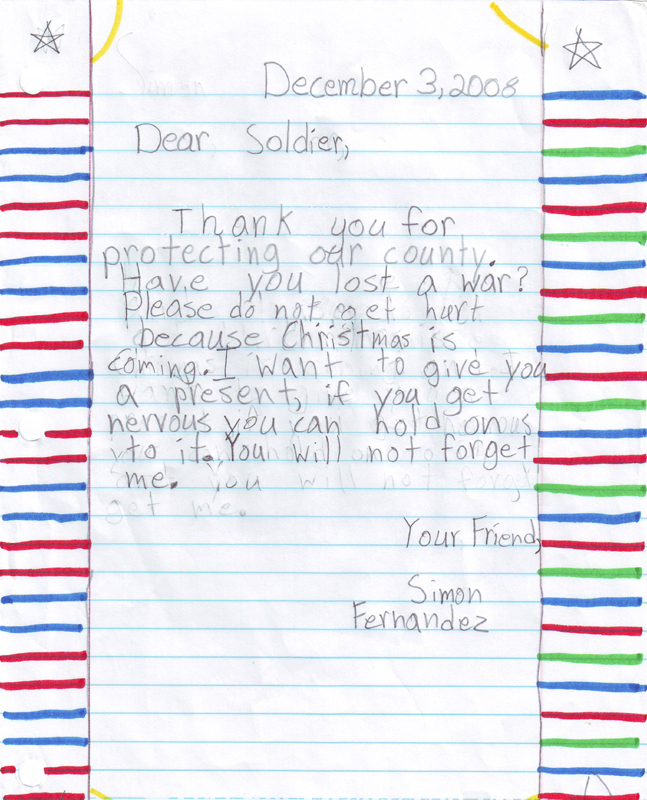 December 3, 2008
Dear Soldier,
Thank you for
protecting our county.
Have you lost a war?
Please do not get hurt
because Christmas is
coming. I want to give you
a present, if you get
nervous you can hold on
to it. You will not forget
me.
Your Friend,
Simon
Fernandez